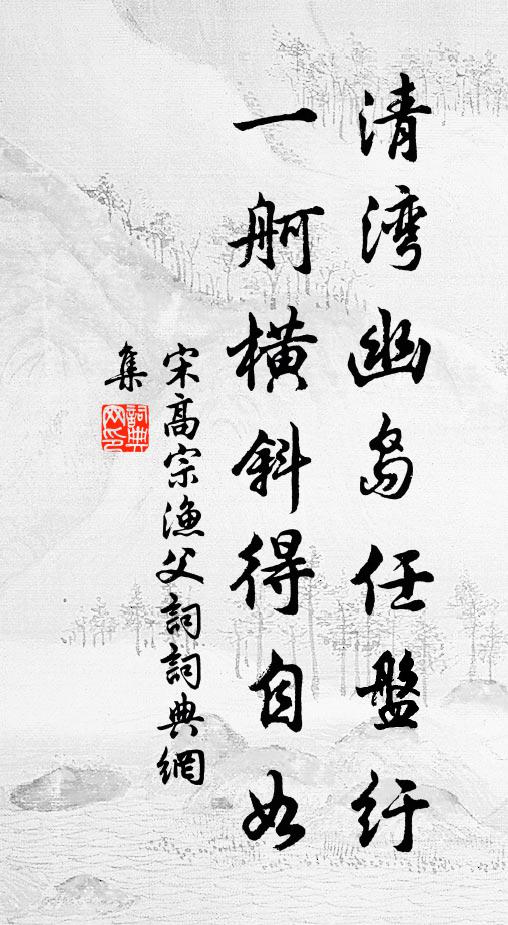 清湾幽岛任盤纡
一舸横斜得自如
宋高宗渔父詞詞典網
集
詞典网印